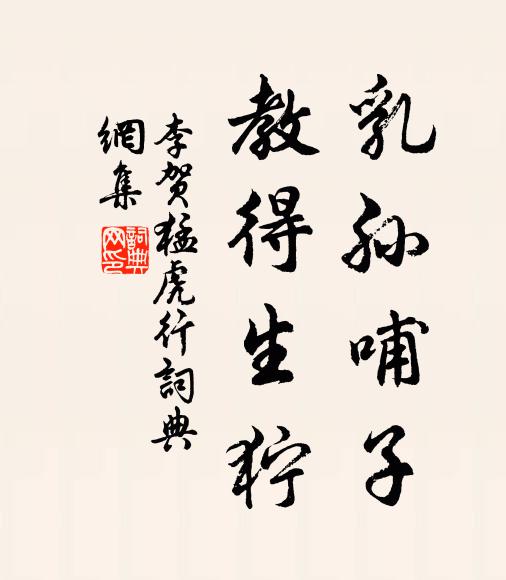 乳孙哺子
教得生狞
李贺猛虎行词典
網集
詞典
网印